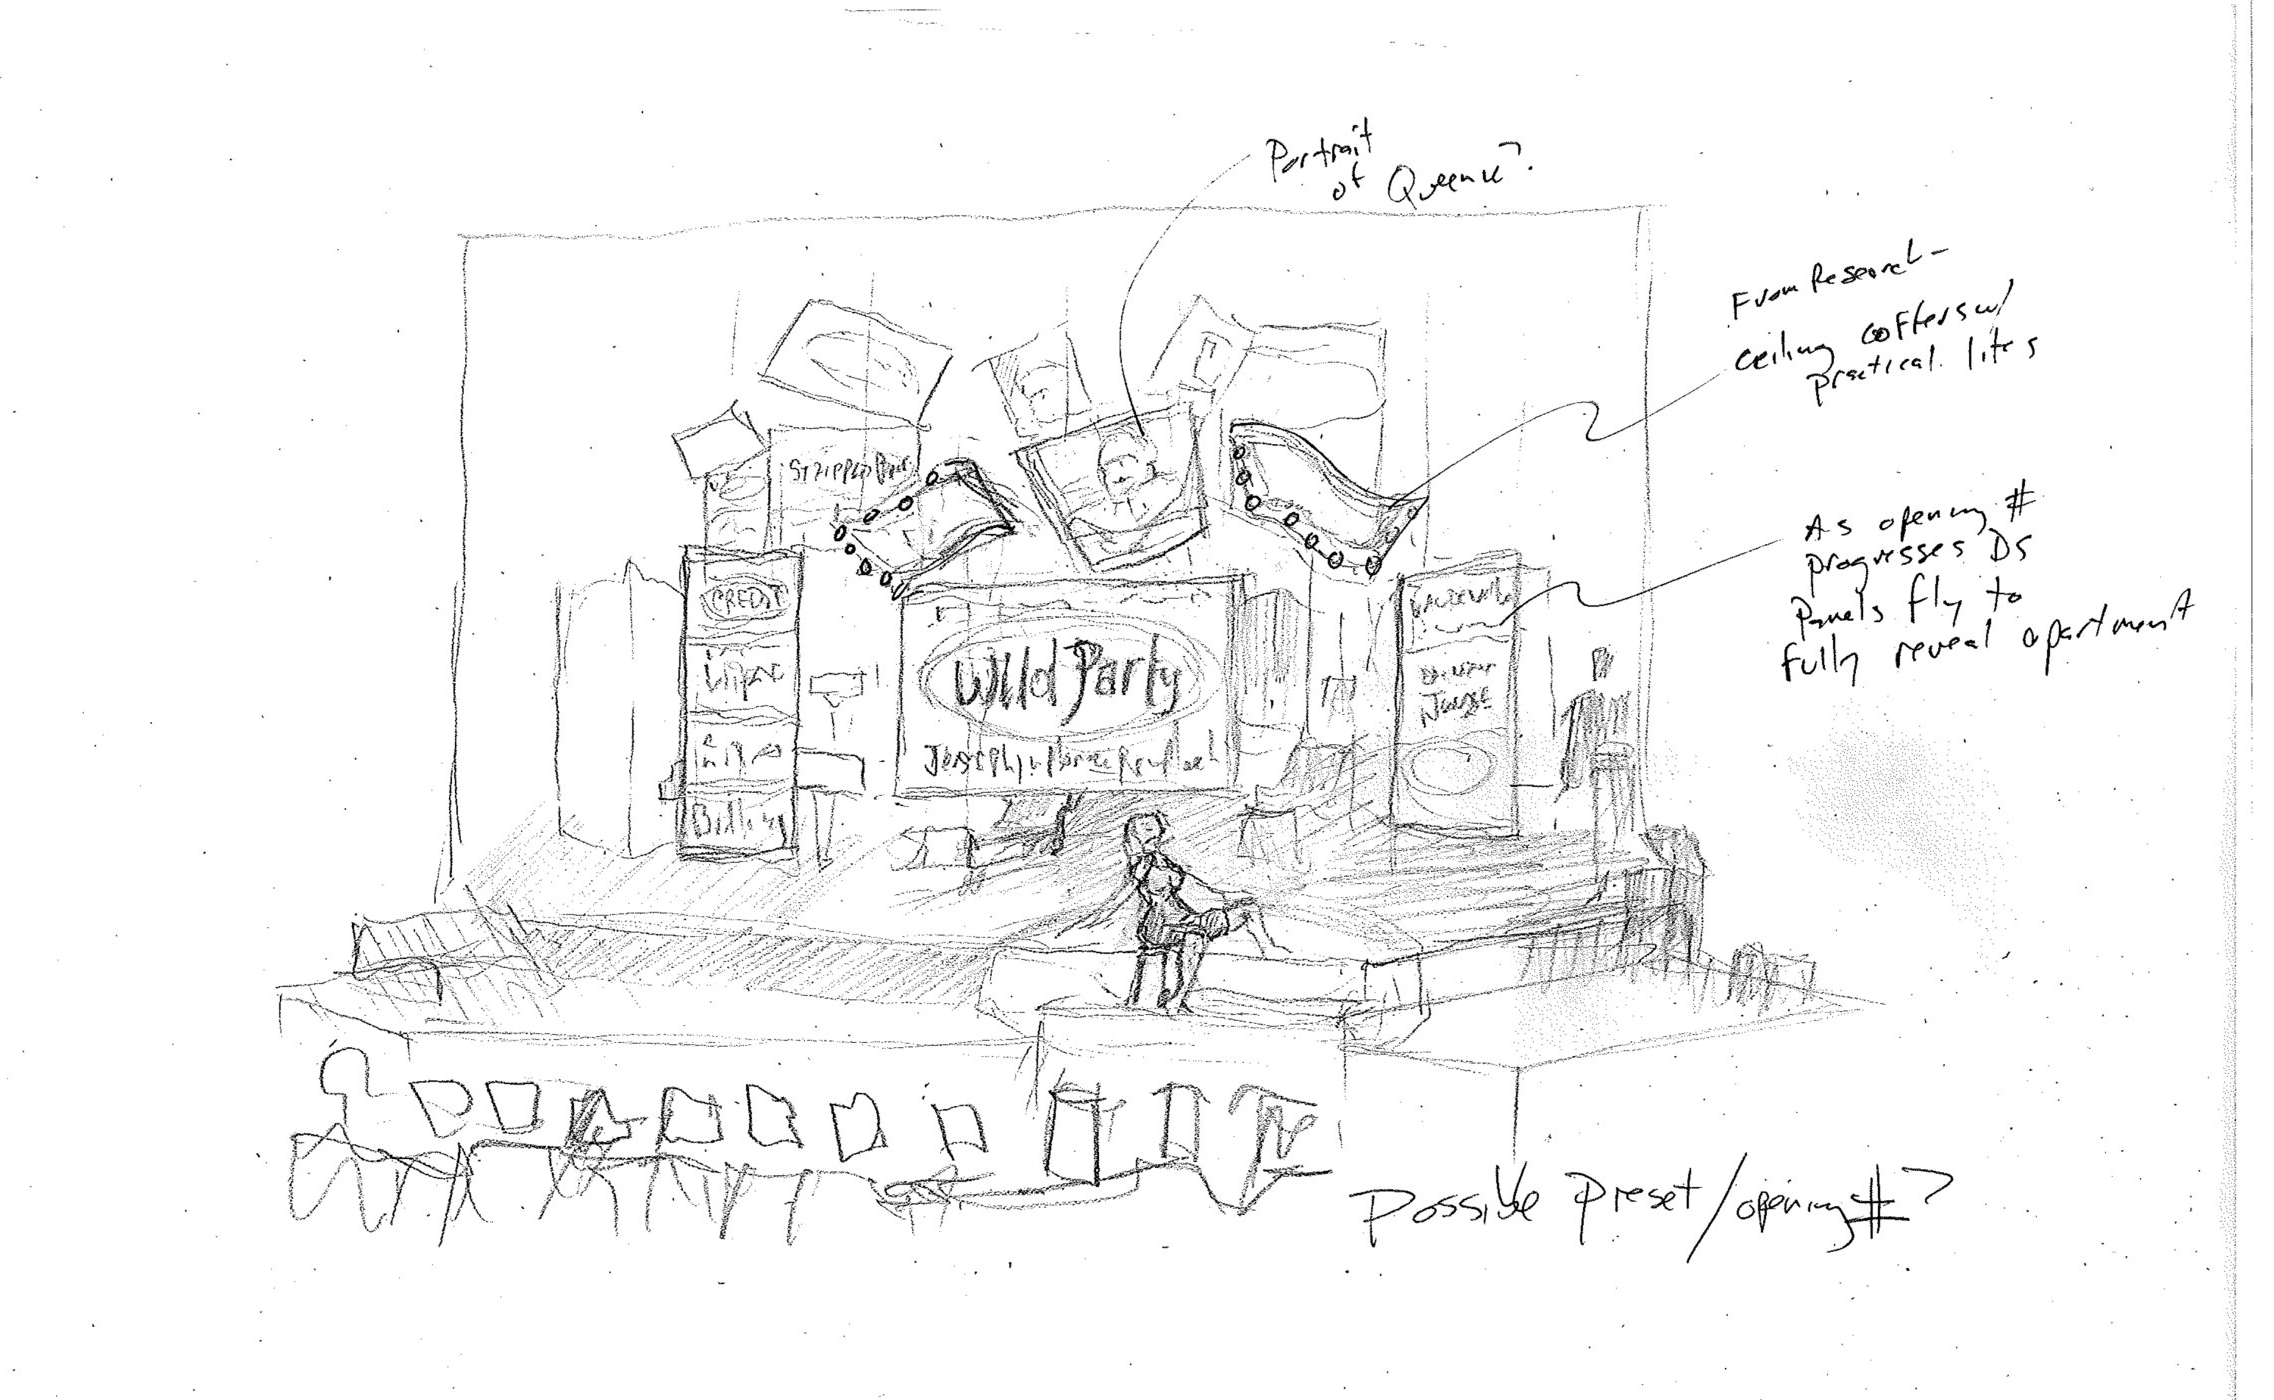 Portrait
of Queenie?
From Research -
ceiling coffers w/
practical lites
As opening #
progresses DS
Panels fly to
fully reveal apartment
STRIPPED
CREDIT
Wild Party
Joseph
Billing
Possible Preset/opening #?